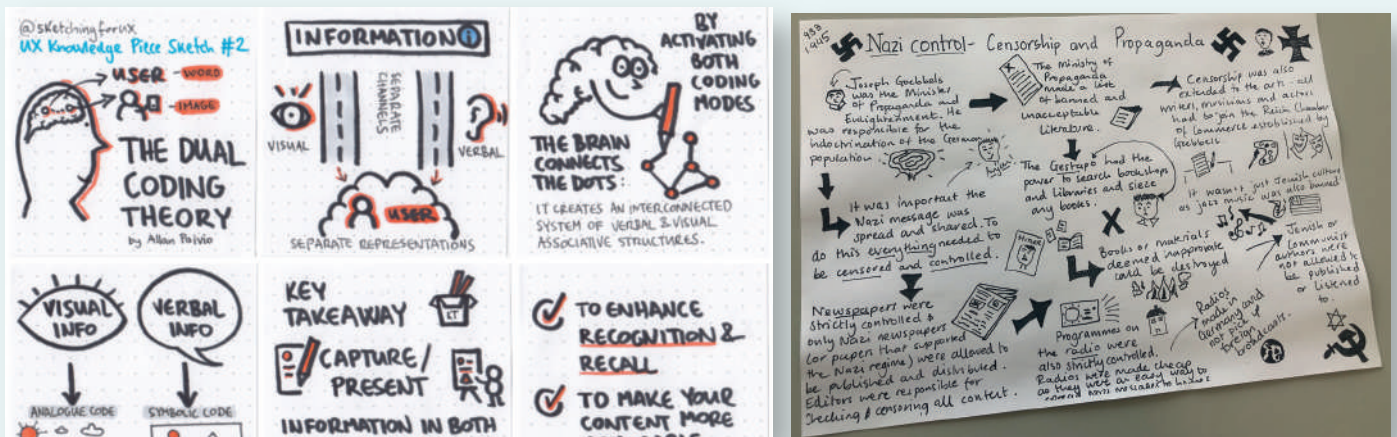 @sketchingforux
UX Knowledge Piece Sketch #2
USER - WORD
IMAGE
THE DUAL
CODING
THEORY
by Allan Paivio
INFORMATION i
SEPARATE
CHANNELS
VISUAL
VERBAL
USER
SEPARATE REPRESENTATIONS
BY
ACTIVATING
BOTH
CODING
MODES
THE BRAIN
CONNECTS
THE DOTS:
IT CREATES AN INTERCONNECTED
SYSTEM OF VERBAL & VISUAL
ASSOCIATIVE STRUCTURES.
VISUAL
INFO
VERBAL
INFO
ANALOGUE CODE
SYMBOLIC CODE
KEY
TAKEAWAY
CAPTURE/
PRESENT
INFORMATION IN BOTH
TO ENHANCE
RECOGNITION &
RECALL
TO MAKE YOUR
CONTENT MORE
1945
Nazi control - Censorship and Propaganda
Joseph Goebbels
was the Minister
of Propaganda and
Enlightenment. He
was responsible for the
indoctrination of the German
population
It was important the
Nazi message was
spread and shared. To
do this everything needed to
be censored and controlled.
Newspapers were
strictly controlled &
only Nazi newspapers
(or papers that supported
the Nazi regime) were allowed to
be published and distributed.
Editors were responsible for
checking & censoring all content.
The Ministry of
Propaganda
made a list
of banned and
unacceptable
literature.
The Gestapo had the
power to search bookshops
and libraries and siece
any books.
HITLER
Books or materials
deemed inappropriate
could be destroyed
Programmes on
the radio were
also strictly controlled.
Radios were made cheap
as they were an easy way to
Radios
made in
Germany could
not pick up
foreign
broadcasts.
Censorship was also
extended to the arts - all
writers, musicians and actors
had to join the Reich Chamber
of Commerce established by
Goebbels
It wasn't just Jewish culture
as jazz music was also banned
Jewish or
Communist
authors were
not allowed to
be published
or listened
to.